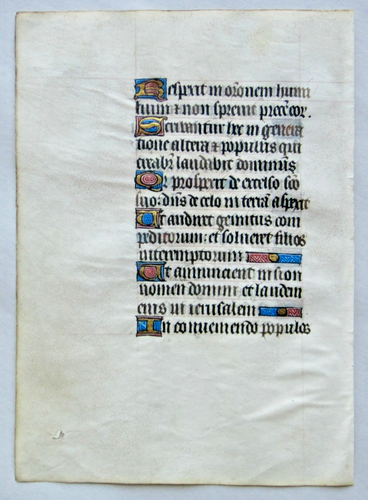 Respexit in oronem humi
lium & non sprevit precē eor.
Scribantur hec in genera
tione altera & populus qui
creabit̄ laudabit dominum
Qr prospexit de excelso sco
suo: dn̄s de celo in terrā aspexit
Ut audiret gemitus com
peditorum: et solveret filios
interemptorum
Ut annuncient in sion
nomen domini et laudem
eius in ierusalem
In conveniendo populos